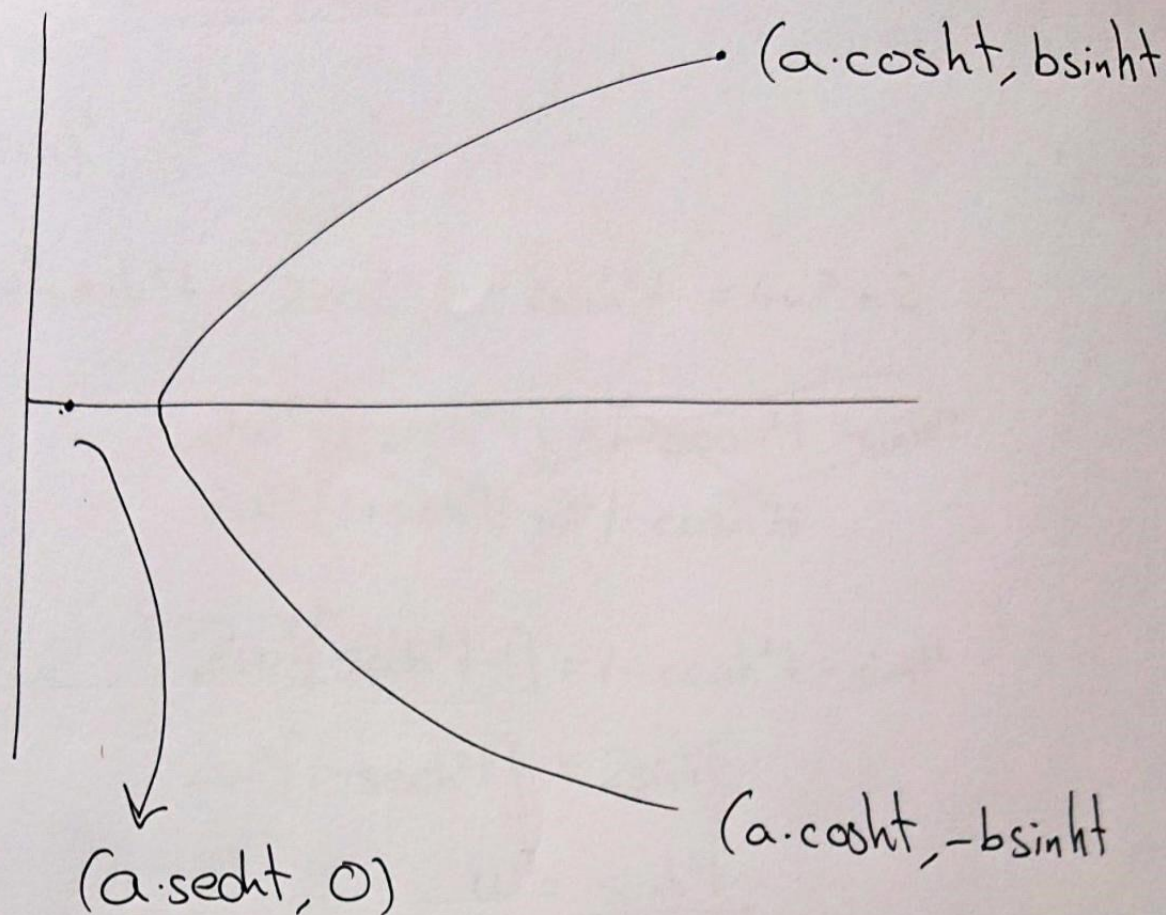 (a·cosht, bsinht
(a·cosht, -bsinht
(a·secht, 0)